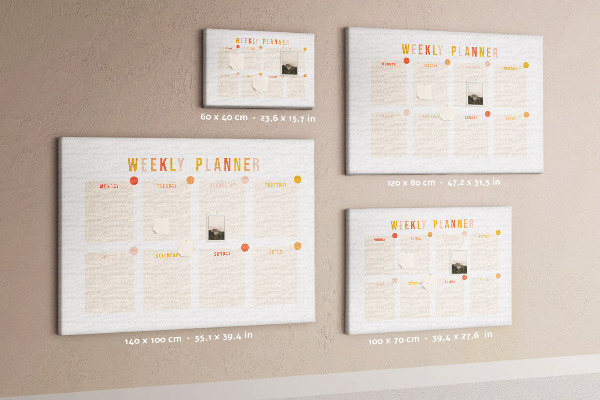 WEEKLY PLANNER
60 x 40 cm - 23,6 x 15,7 in
WEEKLY PLANNER
MONDAY TUESDAY THURSDAY
SUNDAY NOTES
120 x 80 cm - 47,2 x 31,5 in
WEEKLY PLANNER
MONDAY TUESDAY WEDNESDAY THURSDAY
FRIDAY SATURDAY SUNDAY NOTES
140 x 100 cm - 55,1 x 39,4 in
WEEKLY PLANNER
MONDAY
SUNDAY
100 x 70 cm - 39,4 x 27,6 in